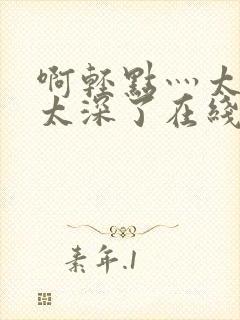 啊輕點灬太
太深了在綫
素年.1